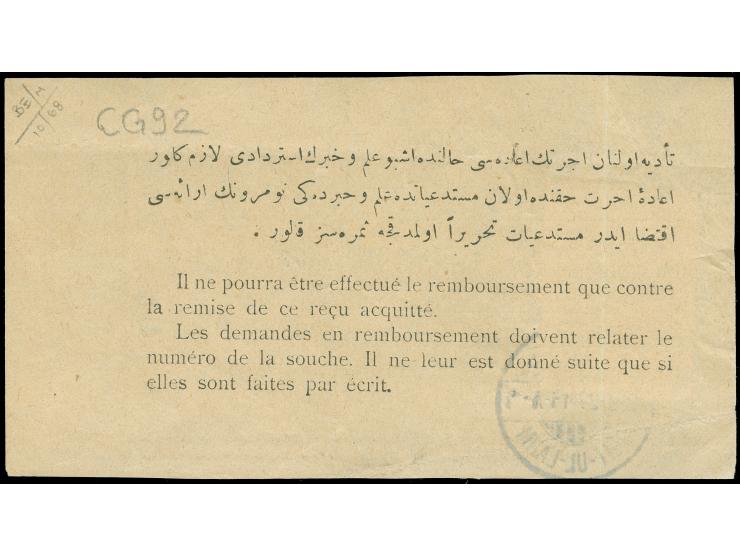 BÉ/M
10/68
CG92
تأدیه اولنان اجرتك اعاده‌سی حالنده اشبو علم و خبرك استردادی لازم كلور
اعادهٔ اجرت حقنده اولان مستدعیاتده علم و خبرده‌كی نومرونك ارائه‌سی
اقتضا ایدر مستدعیات تحریراً اولمدقجه ثمره‌سز قلور .
Il ne pourra être effectué le remboursement que contre
la remise de ce reçu acquitté.
Les demandes en remboursement doivent relater le
numéro de la souche. Il ne leur est donné suite que si
elles sont faites par écrit.